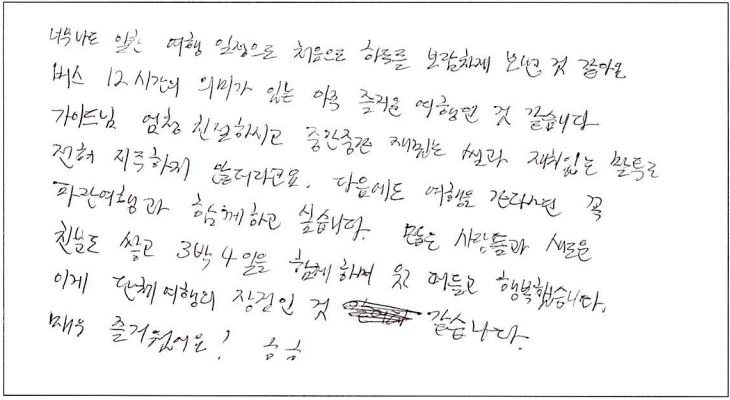 너무나도 알찬 여행 일정으로 처음으로 하루를 보람차게 보낸 것 같아요
버스 12시간의 의미가 있는 아주 즐거운 여행인 것 같습니다
가이드님 엄청 친절하시고 중간중간 재밌는 썰과 재치있는 말투로
전혀 지루하지 않더라고요. 다음에도 여행을 간다면 꼭
파란여행과 함께하고 싶습니다. 많은 사람들과 새로운
친분도 쌓고 3박 4일을 함께하며 웃고 떠들고 행복했습니다.
이게 단체여행의 장점인 것 같습니다.
매우 즐거웠어요! ㅎㅎ